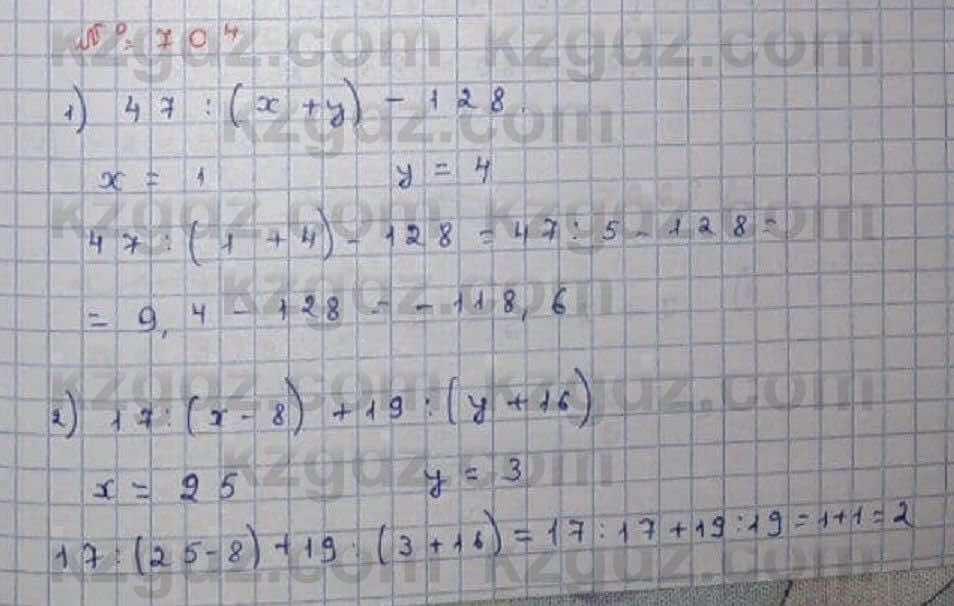 №: 704
1) 47 : (x + y) - 128.
x = 1 y = 4
47 : (1 + 4) - 128 = 47 : 5 - 128 =
= 9,4 - 128 = -118,6
2) 17 : (x - 8) + 19 : (y + 16)
x = 25 y = 3
17 : (25 - 8) + 19 : (3 + 16) = 17 : 17 + 19 : 19 = 1 + 1 = 2
kzgdz.com kzgdz.com
kzgdz.com
kzgdz.com kzgdz.com
kzgdz.com
kzgdz.com kzgdz.com
kzgdz.com
kzgdz.com kzgdz.com